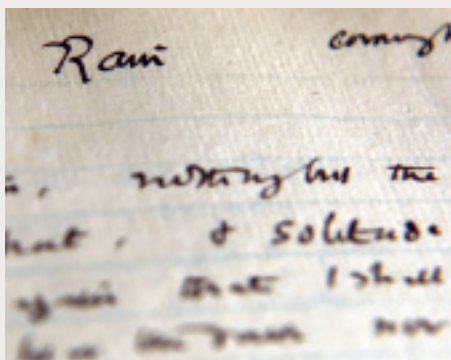 Rain
nothing but the
hut, & solitude
again that I shall
rain nor